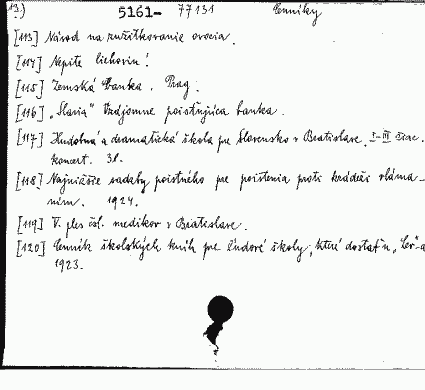 13.) 5161- 77131 Cenníky
[113] Návod na zužitkovanie ovocia.
[114] Nepite liehovin!
[115] Zemská Banka. Prag.
[116] „Slavia" Vzájomne poisťujúca banka.
[117] Hudobná a dramatická škola pre Slovensko v Bratislave. I-III
koncert. 3l.
[118] Najnižšie sadzby poistného pre poistenia proti krádeži vláma-
ním. 1924.
[119] V. ples čsl. medikov v Bratislave.
[120] Cenník školských kníh pre ľudové školy, ktoré dostať u
1923.